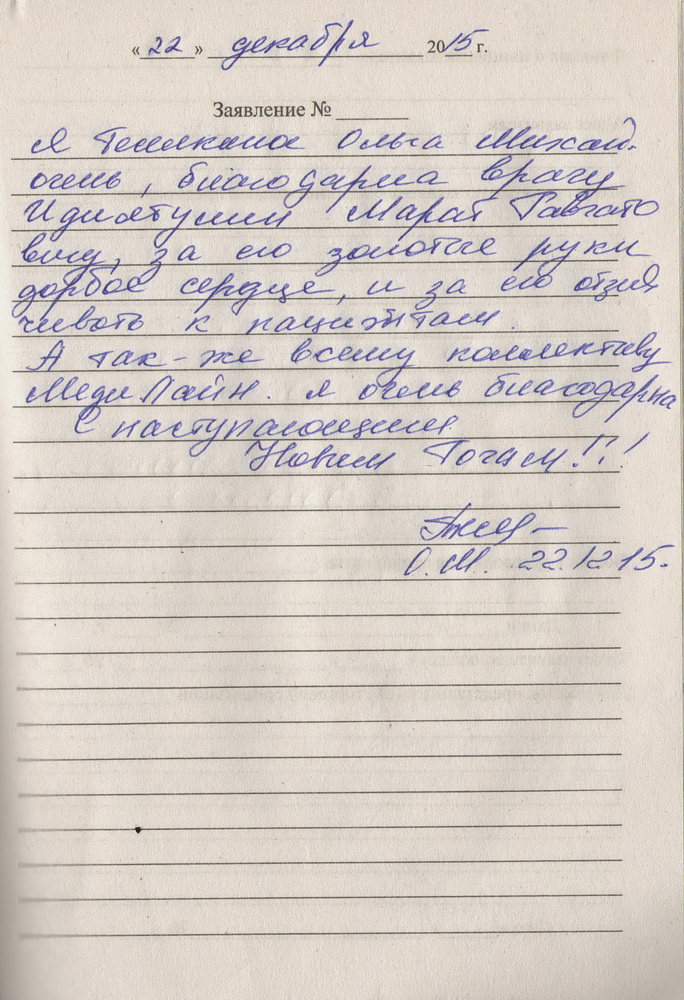 « 22 » декабря 2015 г.
Заявление №
Я Ольга Михай.
очень, благодарна врачу
Идиятулин Марат Равгато
вичу, за его золотые руки
дорбое сердце, и за его отзыв
чивоть к пациэнтам.
А так-же всему коллективу
МедиЛайн. я очень благодарна
С наступающим
Новым Годам!!!
О.М. 22.12.15.